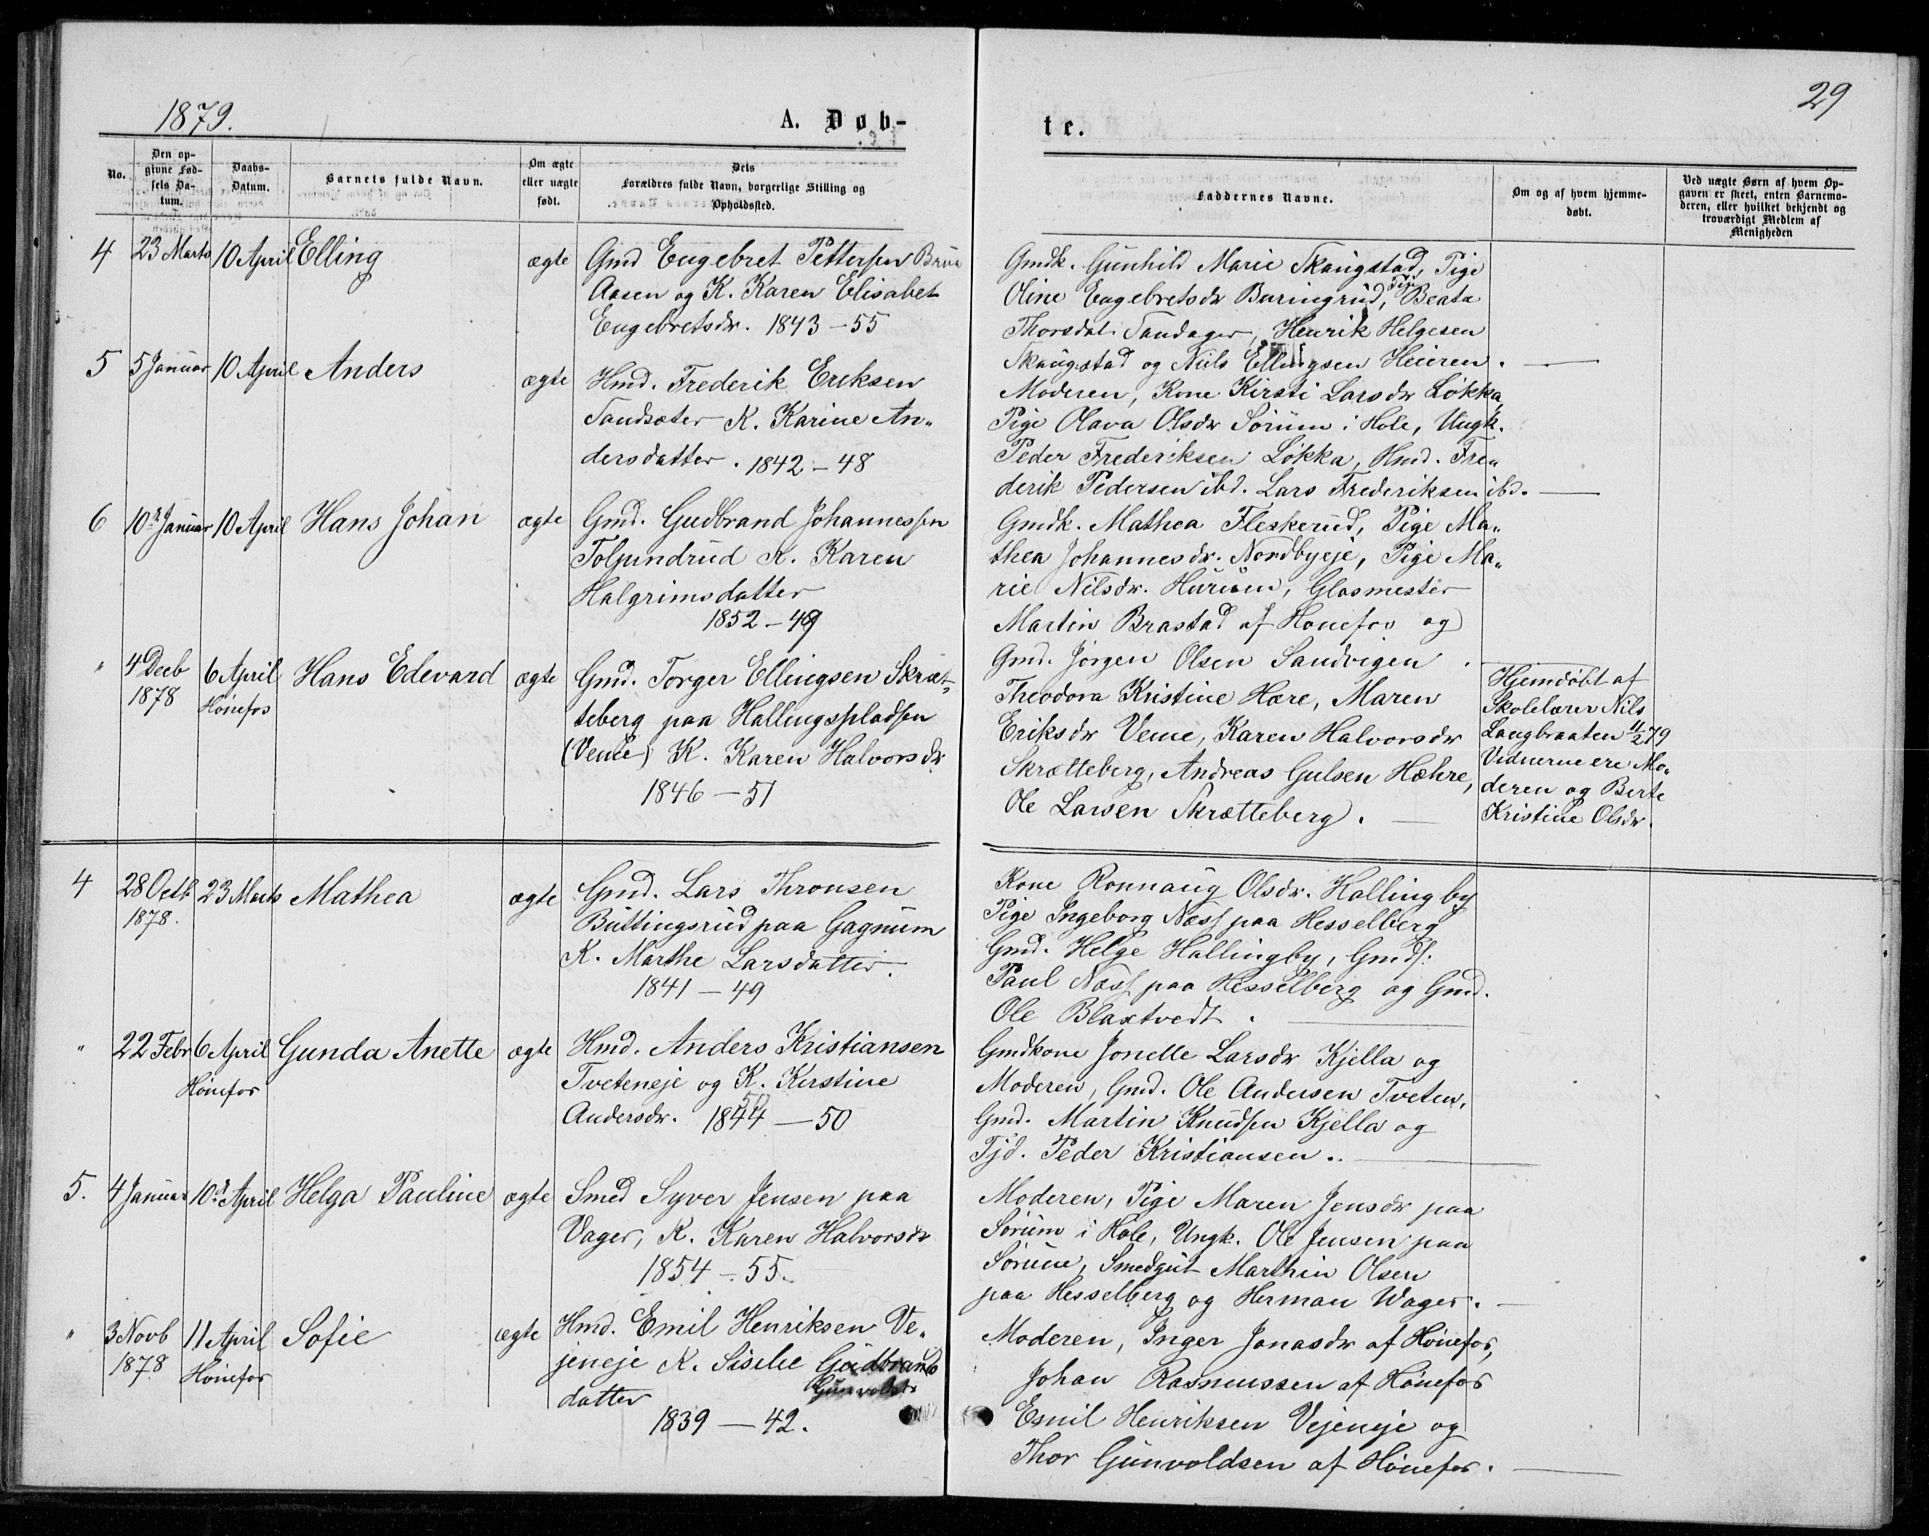 1879.
A. Døb-
te.
29
No.
Den op-
givne Fød-
sels Da-
tum.
Daabs-
Datum.
Barnets fulde Navn.
Om ægte
eller uægte
født.
Dets
Forældres fulde Navn, borgerlige Stilling og
Opholdssted.
Faddernes Navne.
Om og af hvem hjemme-
døbt.
Ved uægte Børn af hvem Op-
gaven er skeet, enten Barnemo-
deren, eller hvilket bekjendt og
troværdigt Medlem af
Menigheden
4 23 Marts 10 April Elling ægte Gmd Engebret Pettersen Brua
Aasen og K. Karen Elisabet
Engebretsdr. 1843 – 55
Gmdk. Gunhild Marie Skaugstad, Pige
Oline Engebretsdr Buringrud, Pige Beata
Thorsdal Tandager, Henrik Helgesen
Skaugstad og Niels Ellingsen Heieren.
5 5 Januar 10 April Anders ægte Hmd. Frederik Eriksen
Tandsæter K. Karine An-
dersdatter. 1842 – 48
Moderen, Kone Kirsti Larsdr Løkka,
Pige Olava Olsdr Sørum i Hole, Ungk.
Peder Frederiksen Løkka, Hmd. Fre-
derik Pedersen ibd. Lars Frederiksen ibd.
6 10de Januar 10 April Hans Johan ægte Gmd. Gudbrand Johannessen
Tolpundrud K. Karen
Halgrimsdatter
1852 – 49
Gmdk. Mathea Fleskerud, Pige Ma-
thea Johannesdr. Nordbyeje, Pige Ma-
rie Nilsdr. Hurum, Glasmester
Martin Brastad af Hønefos og
Gmd. Jørgen Olsen Sandvigen
" 4 Decb 6 April Hans Edevard ægte Gmd. Torger Ellingsen Skræt-
1878 Hønefos
teberg paa Hallingspladsen
(Veme) K. Karen Halvorsdr
1846 – 51
Theodora Kristine Hære, Maren
Eriksdr Veme, Karen Halvorsdr
Skrætteberg, Andreas Gulsen Hæhre,
Ole Larsen Skrætteberg.
Hjemdøbt af
Skolelærer Nils
Langbraaten 11/2 79
Vidnerne ere Mo-
deren og Berte
Kristine Olsdr.
4 28 Octb 23 Marts Mathea ægte Gmd. Lars Thronsen
1878.
Buttingsrud paa Gagnum
K. Marthe Larsdatter.
1841 – 49
Kone Ronnaug Olsdr. Hallingby
Pige Ingeborg Næss paa Hesselberg
Gmd. Helge Hallingby, Gmds.
Paul Næss paa Hesselberg og Gmd.
Ole Blaxtvedt.
" 22 Febr 6 April Gunda Anette ægte Hmd. Anders Kristiansen
Hønefos
Tveteneje og K. Kirstine
Andersdr. 1844 – 50
Gmdkone Jonette Larsdr Kjella og
Moderen, Gmd. Ole Andersen Tveten,
Gmd. Martin Knudsen Kjella og
Tjd. Peder Kristiansen.
5. 4 Januar 10de April Helga Pauline ægte Smed Syver Jensen paa
Vager, K. Karen Halvorsdr
1854 – 55.
Moderen, Pige Maren Jensdr paa
Sørum i Hole, Ungk. Ole Jensen paa
Sørum, Smedgut Marthin Olsen
paa Hesselberg og Herman Wager.
" 3 Novb 11 April Sofie ægte Hmd. Emil Henriksen Ve-
1878 Hønefos
jeneje K. Sisilie Gudbrands
Gunvolds
datter
1839 – 42.
Moderen, Inger Jonasdr af Hønefos,
Johan Rasmussen af Hønefos
Emil Henriksen Vejeneje og
Thor Gunvoldsen af Hønefos.